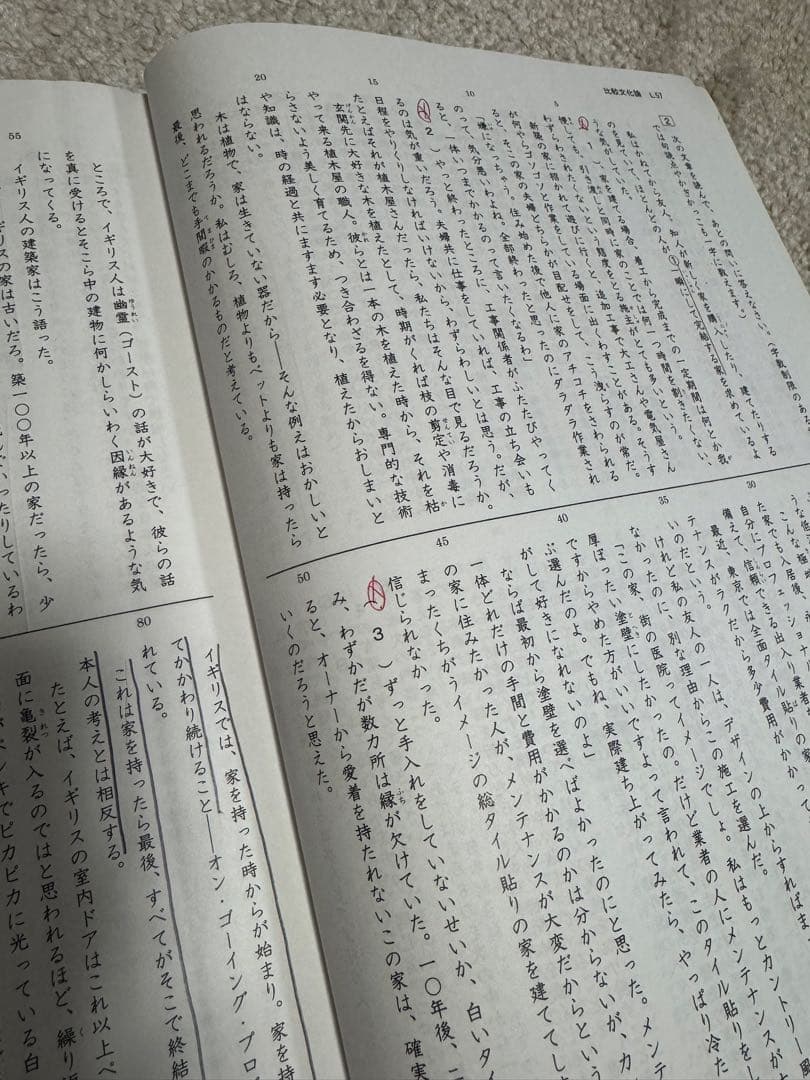 比較文化論 L57
2 次の文章を読んで、あとの問いに答えなさい。(字数制限のある
では句読点やかぎかっこも一字に数えます。)
私はかねてから友人、知人が新しく家を購入したり、建てたりする
のを見ていて、ほとんどの人が①一瞬にして完結する家を求めているよ
うな気がしていた。
( 1 )、家を建てる場合、着工から完成までの一定期間は何とか我
慢しても、引き渡しと同時に家のことでは何一つ時間を割きたくない、
わずらわされたくないという態度をとる施主がとても多いという。
新築の家に招かれて、遊びに行くと、追加工事で大工さんや電気屋さん
が何やらゴソゴソと作業をしている場面に出くわすことがある。そうす
ると、そこの家の夫婦どちらかが目配せをして、こう洩らすのが常だ。
「嫌になっちゃう。全部終わったと思ったのにダラダラ作業され
のって、気分悪いわよね。住み始めた後で他人に家のアチコチをさわられる
ると、一体いつまでかかるのって言いたくなるわ」
( 2 )、やっと終わったところに、工事関係者がふたたびやってく
るのは気が重いだろう。夫婦共に仕事をしていれば、工事の立ち会いも
日程をやりくりしなければいけないから、わずらわしいとは思う。だが、
たとえばそれが植木屋さんだったら、私たちはそんな目で見るだろうか。
玄関先に大好きな木を植えたとして、時期がくれば枝の剪定や消毒に
やって来る植木屋の職人。彼らとは一本の木を植えた時から、それを枯
らさないよう美しく育てるため、つき合わざるを得ない。専門的な技術
や知識は、時の経過と共にますます必要となり、植えたからおしまいと
はならない。
木は植物で、家は生きていない器だから——そんな例えはおかしいと
思われるだろうか。私はむしろ、植物よりもペットよりも家は持ったら
最後、どこまでも手間暇のかかるものだと考えている。
た家でも入居後、
自分にプロフェッショナ
備えて、信頼できる出入り業者
最近、東京では全面タイル貼りの家
テナンスがラクだから多少費用がかかって
いのだという。
けれど私の友人の一人は、デザインの上からすればま
なかったのに、別な理由からこの施工を選んだ。
「この家、街の医院ってイメージでしょ。私はもっとカントリー風
厚ぼったい塗壁にしたかったの。だけど業者の人にメンテナンスが
ですからやめた方がいいですよって言われて、このタイル貼りをし
ぶ選んだのよ。でもね、実際建ち上がってみたら、やっぱり冷た
がして好きになれないのよ」
ならば最初から塗壁を選べばよかったのにと思った。メン
一体どれだけの手間と費用がかかるのかは分からないが、カ
の家に住みたかった人が、メンテナンスが大変だからという
まったくちがうイメージの総タイル貼りの家を建ててし
信じられなかった。
( 3 )ずっと手入れをしていないせいか、白いタイ
み、わずかだが数カ所は縁が欠けていた。一〇年後、こ
ると、オーナーから愛着を持たれないこの家は、確実
いくのだろうと思えた。
ところで、イギリス人は幽霊(ゴースト)の話が大好きで、彼らの話
を真に受けるとそこら中の建物に何かしらいわく因縁があるような気
になってくる。
イギリス人の建築家はこう語った。
ギリスの家は古いだろ。築一〇〇年以上の家だったら、少
イギリスでは、家を持った時からが始まり。家を持
てかかわり続けること——オン・ゴーイング・プロ
れている。
これは家を持ったら最後、すべてがそこで終結
本人の考えとは相反する。
たとえば、イギリスの室内ドアはこれ以上ペ
面に亀裂が入るのではと思われるほど、繰り返
ペンキでピカピカに光っている白